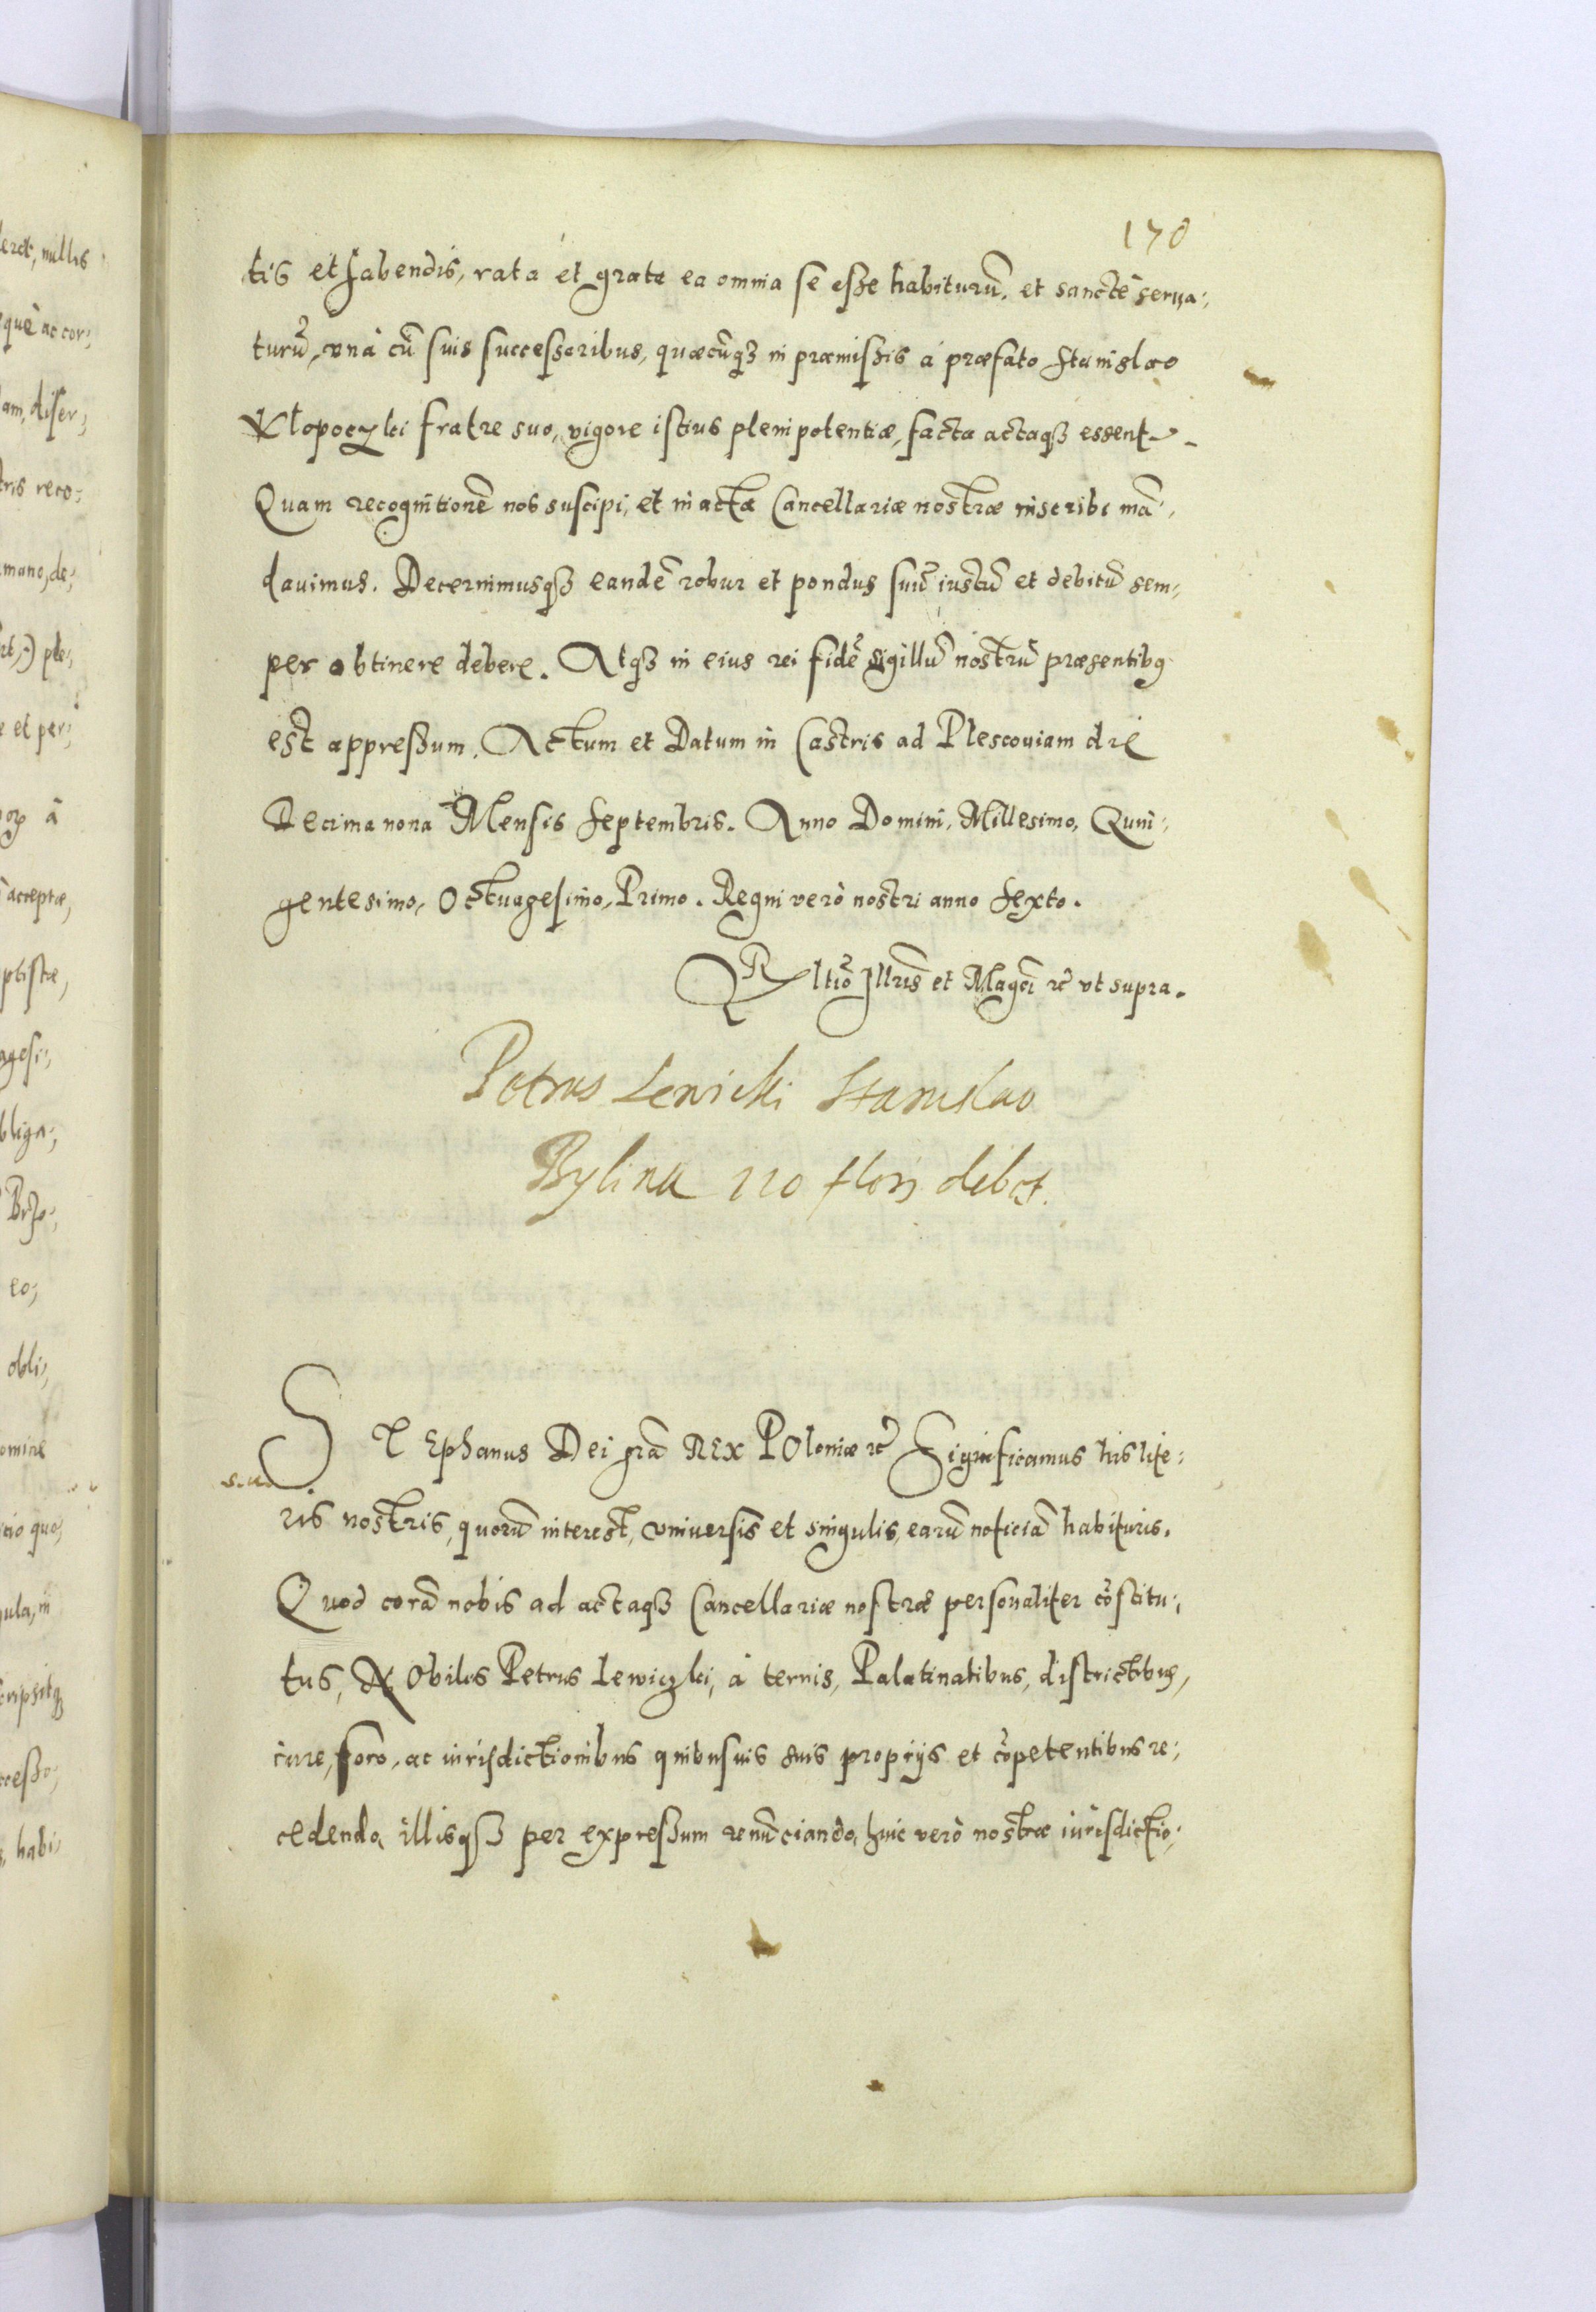 170
tis et habendis, rata et grata ea omnia se esse habiturũ, et sanctè serua,,
turũ, vnà cũ suis successoribus, quæcũqȝ in præmissis à præfato Stanislao
Klopoczki fratre suo, vigore istius plenipotentiæ, facta actaqȝ essent.
Quam recognitionẽ nos suscipi, et in acta Cancellariæ nostræ inscribi mã,,
dauimus. Decernimusqȝ eandẽ robur et pondus suũ iustũ et debitũ sem,,
per obtinere debere. Atqȝ in eius rei fidẽ sigillũ nostrũ præsentibꝰ
est appressum. Actum et Datum in Castris ad Plescouiam die
Decima nona Mensis Septembris. Anno Domini, Millesimo, Quin,,
gentesimo, Octuagesimo, Primo. Regni verò nostri anno Sexto.
Rltiõ Illris et Magci rc̃ vt supra.
Petrus Lewicki Stanislao
Bylina 120 flor debet.
STEphanus Dei grã REx POloniæ rc̃ Significamus his lite,,
ris nostris, quorũ interest, vniuersis et singulis, earũ noticiã habituris.
Quod corã nobis ad actaqȝ Cancellariæ nostræ personaliter cõstitu,,
tus, NObilis Petrus Lewiczki, à terris, Palatinatibus, districtibus,
iure, foro, ac iurisdictionibus quibusuis suis proprijs et cõpetentibus re,,
cedendo, illisqȝ per expressum renũciando, huic verò nostræ iurisdictio,,